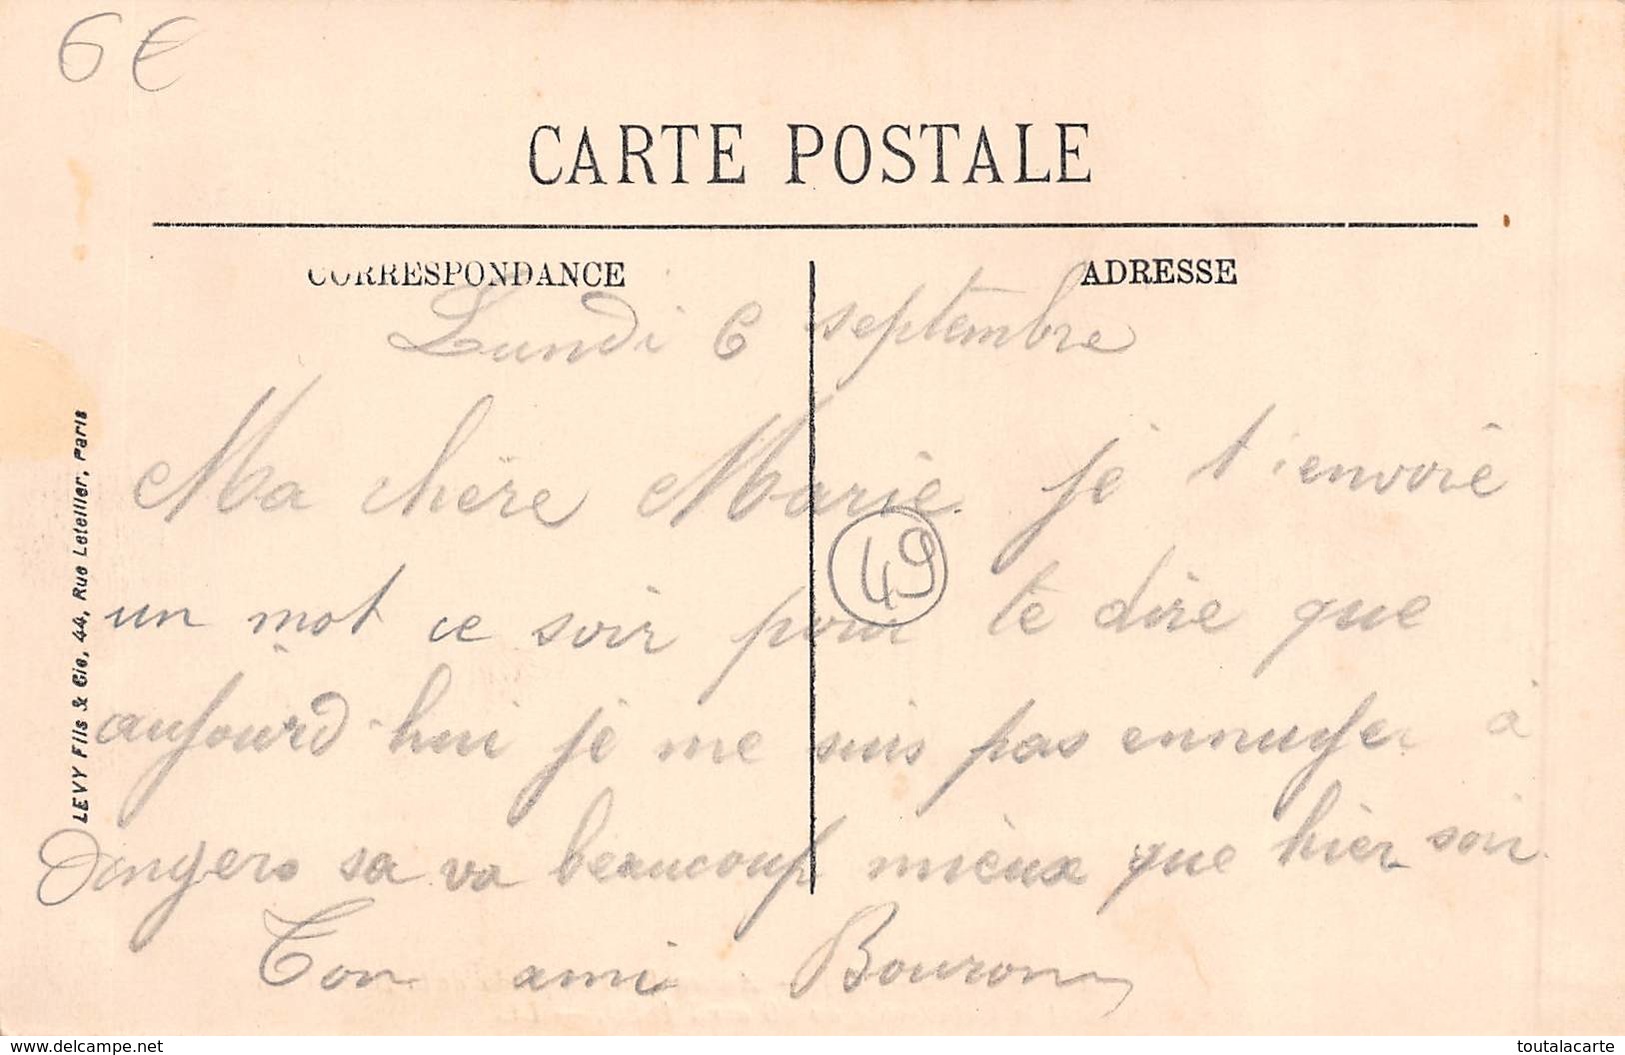 6 €
CARTE POSTALE
CORRESPONDANCE
ADRESSE
Lundi 6 septembre
Ma chère Marie je t'envoie
49
un mot ce soir pour te dire que
aujourd'hui je me suis pas ennuyer à
Angers sa va beaucoup mieux que hier soir
Ton ami Bouron
LEVY Fils & Cie, 44, Rue Letellier, Paris
www.delcampe.net
toutalacarte